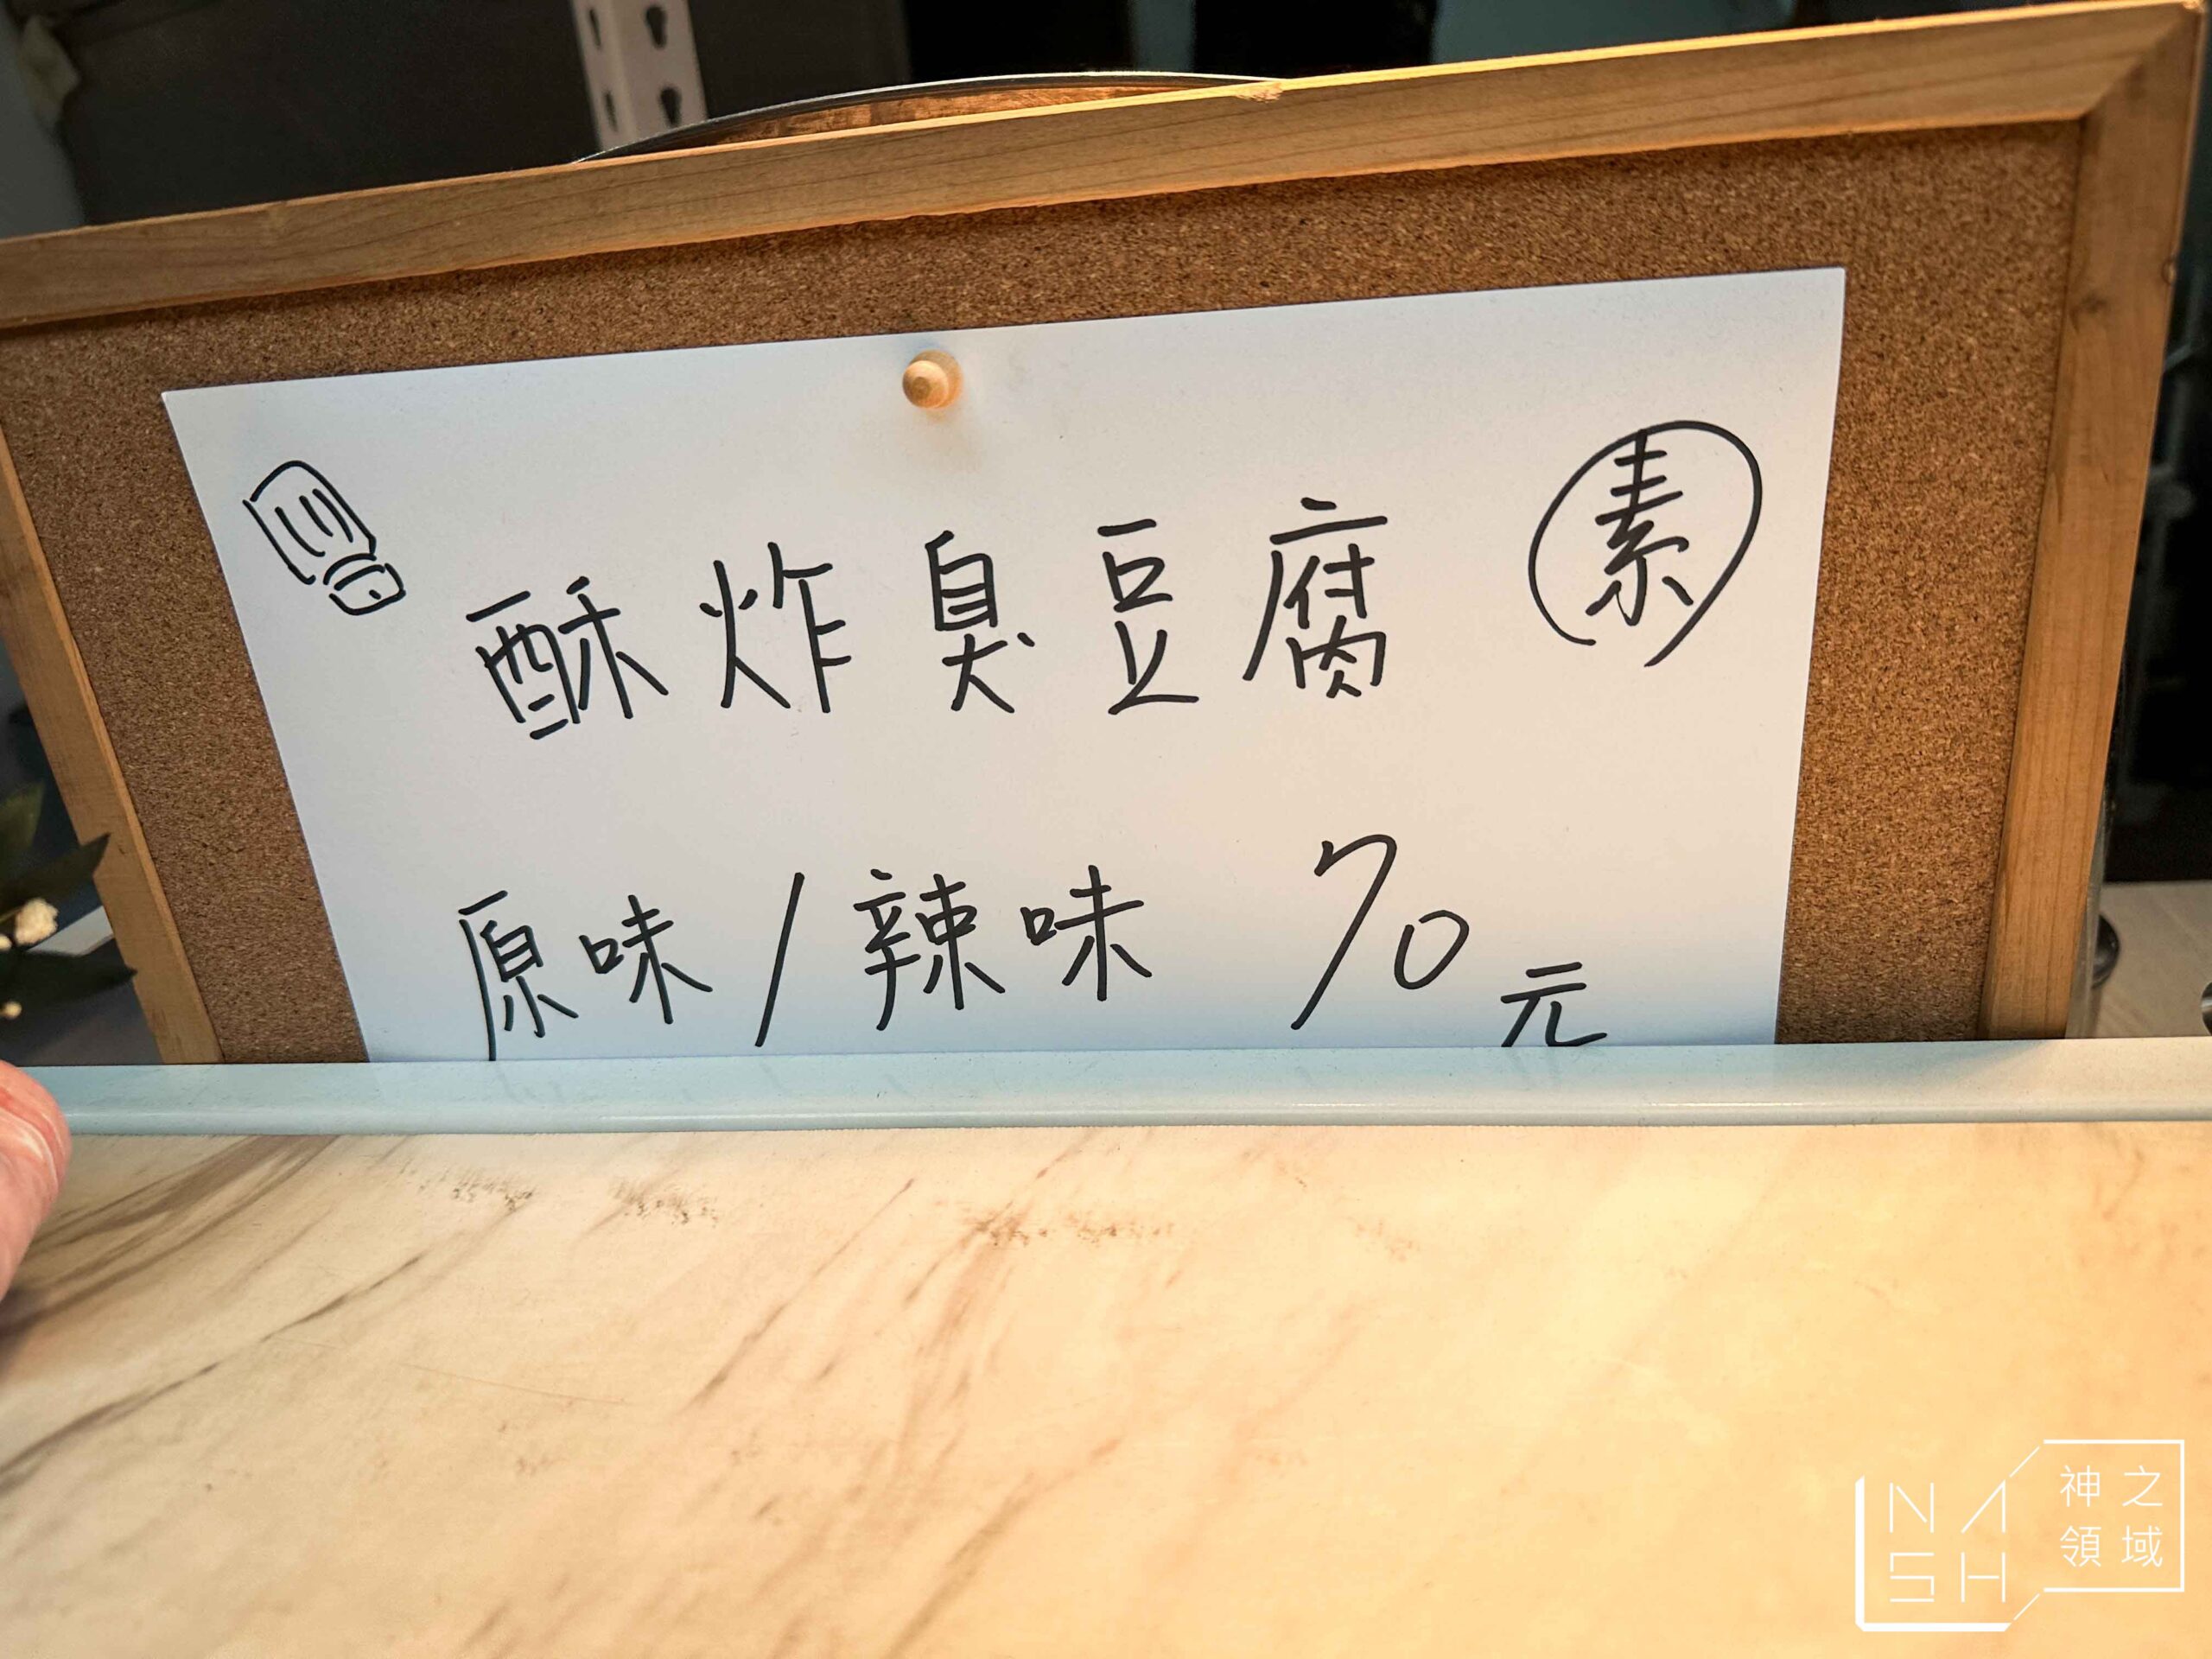 酥炸臭豆腐 素
原味/辣味 70元
NASH 神之領域